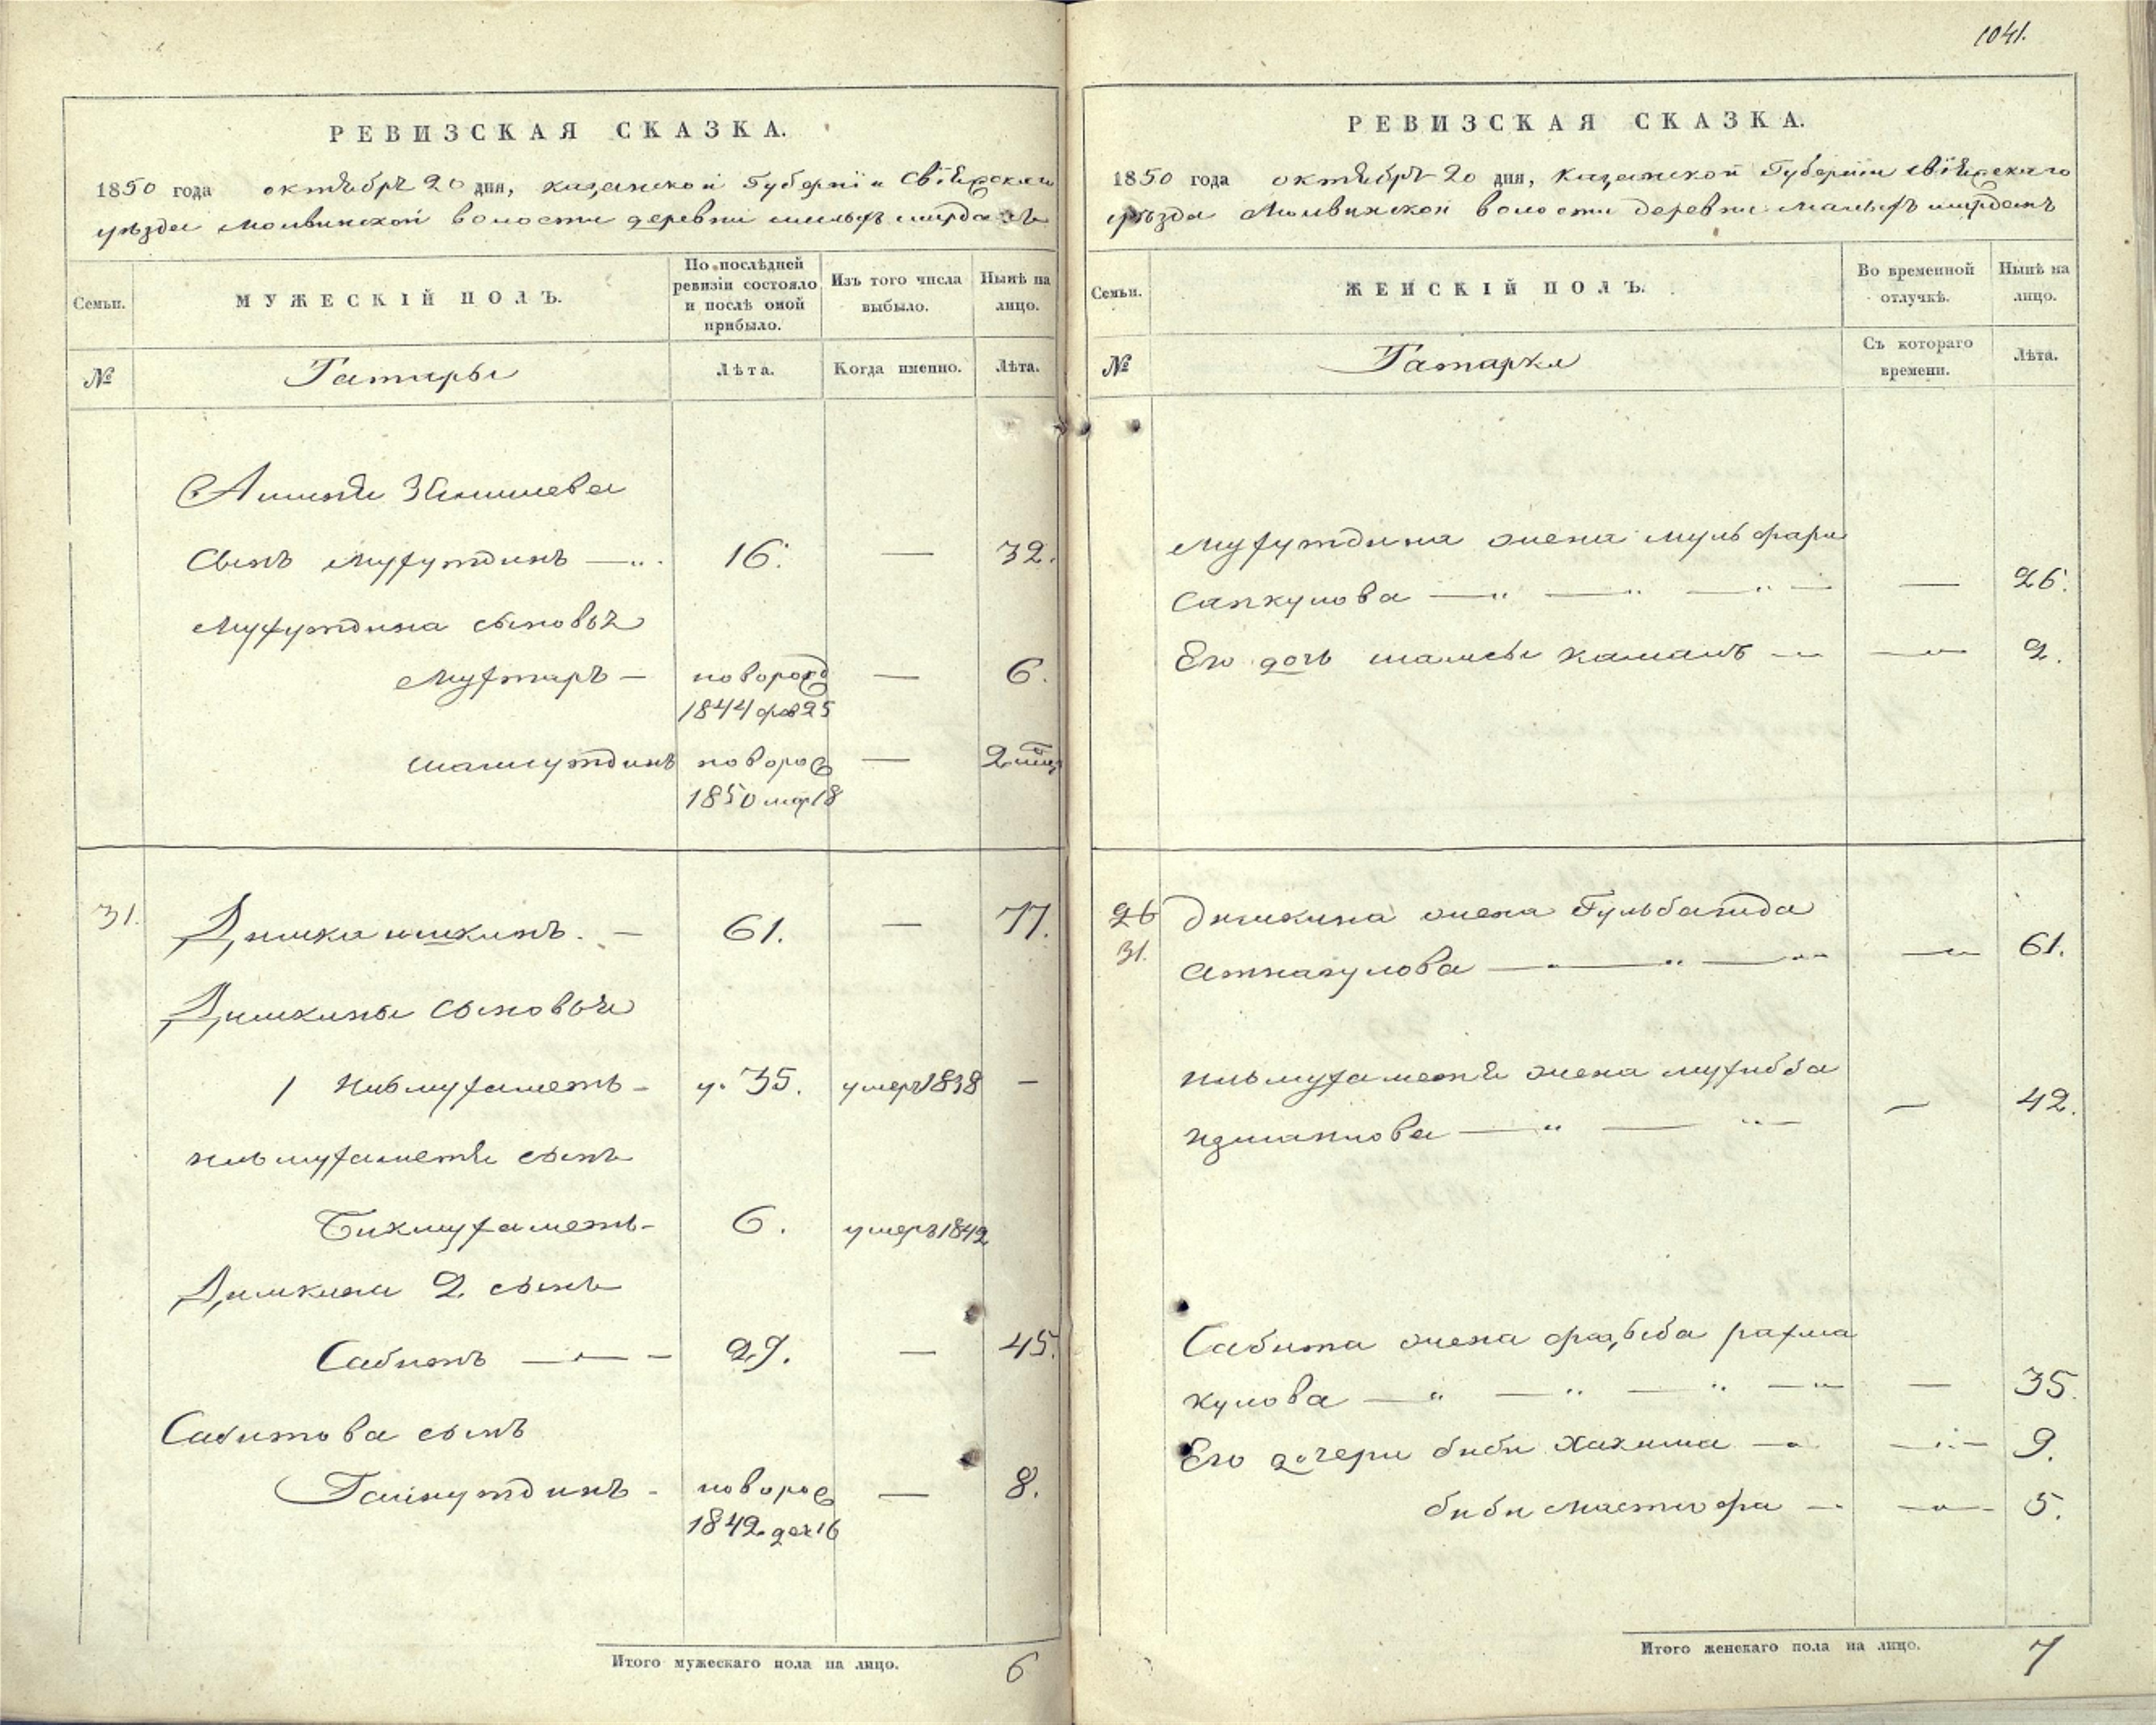 1041.
РЕВИЗСКАЯ СКАЗКА.
1850 года октября 20 дня, казанской Губернїи Свїяжскаго
уѣзда Молвинской волости деревни малыхъ ширданъ
Семьи.
МУЖЕСКІЙ ПОЛЪ.
По послѣдней ревизіи состояло и послѣ оной прибыло.
Изъ того числа выбыло.
Нынѣ на лицо.
№
Татары
Лѣта.
Когда именно.
Лѣта.
Сынъ Мухутдинъ — 16. — 32.
Мухутдина сыновья
Мухтаръ — новорожд — 6.
1844 фев 25
шамсутдинъ новорож — 2
1850 мар 18
31. Димка ишкинъ. — 61. — 77.
Димкины сыновья
1 Нивмухаметъ — у. 35. умеръ 1838 —
сынъ
Бикмухаметъ — 6. умеръ 1842
Димкина 2. сынъ
Сабитъ — 29. — 45.
Сабитова сынъ
Гайнутдинъ — новорож — 8.
1842 дек 16
Итого мужескаго пола на лицо. 6
РЕВИЗСКАЯ СКАЗКА.
1850 года октября 20 дня, казанской Губернїи свїяжскаго
уѣзда Молвинской волости деревни малыхъ ширданъ
Семьи.
ЖЕНСКІЙ ПОЛЪ.
Во временной отлучкѣ.
Нынѣ на лицо.
№
Татарки
Съ котораго времени.
Лѣта.
Мухутдина жена
Сапкулова — — 26.
Его дочь шамсы камалъ — — 2.
26 Димкина жена Гульбагида
31. Аткагулова — — 61.
жена мухибба
— — 42.
Сабита жена рахма
кулова — — 35.
Его дочери биби Хакима — — 9.
биби Мастюфа — — 5.
Итого женскаго пола на лицо. 7